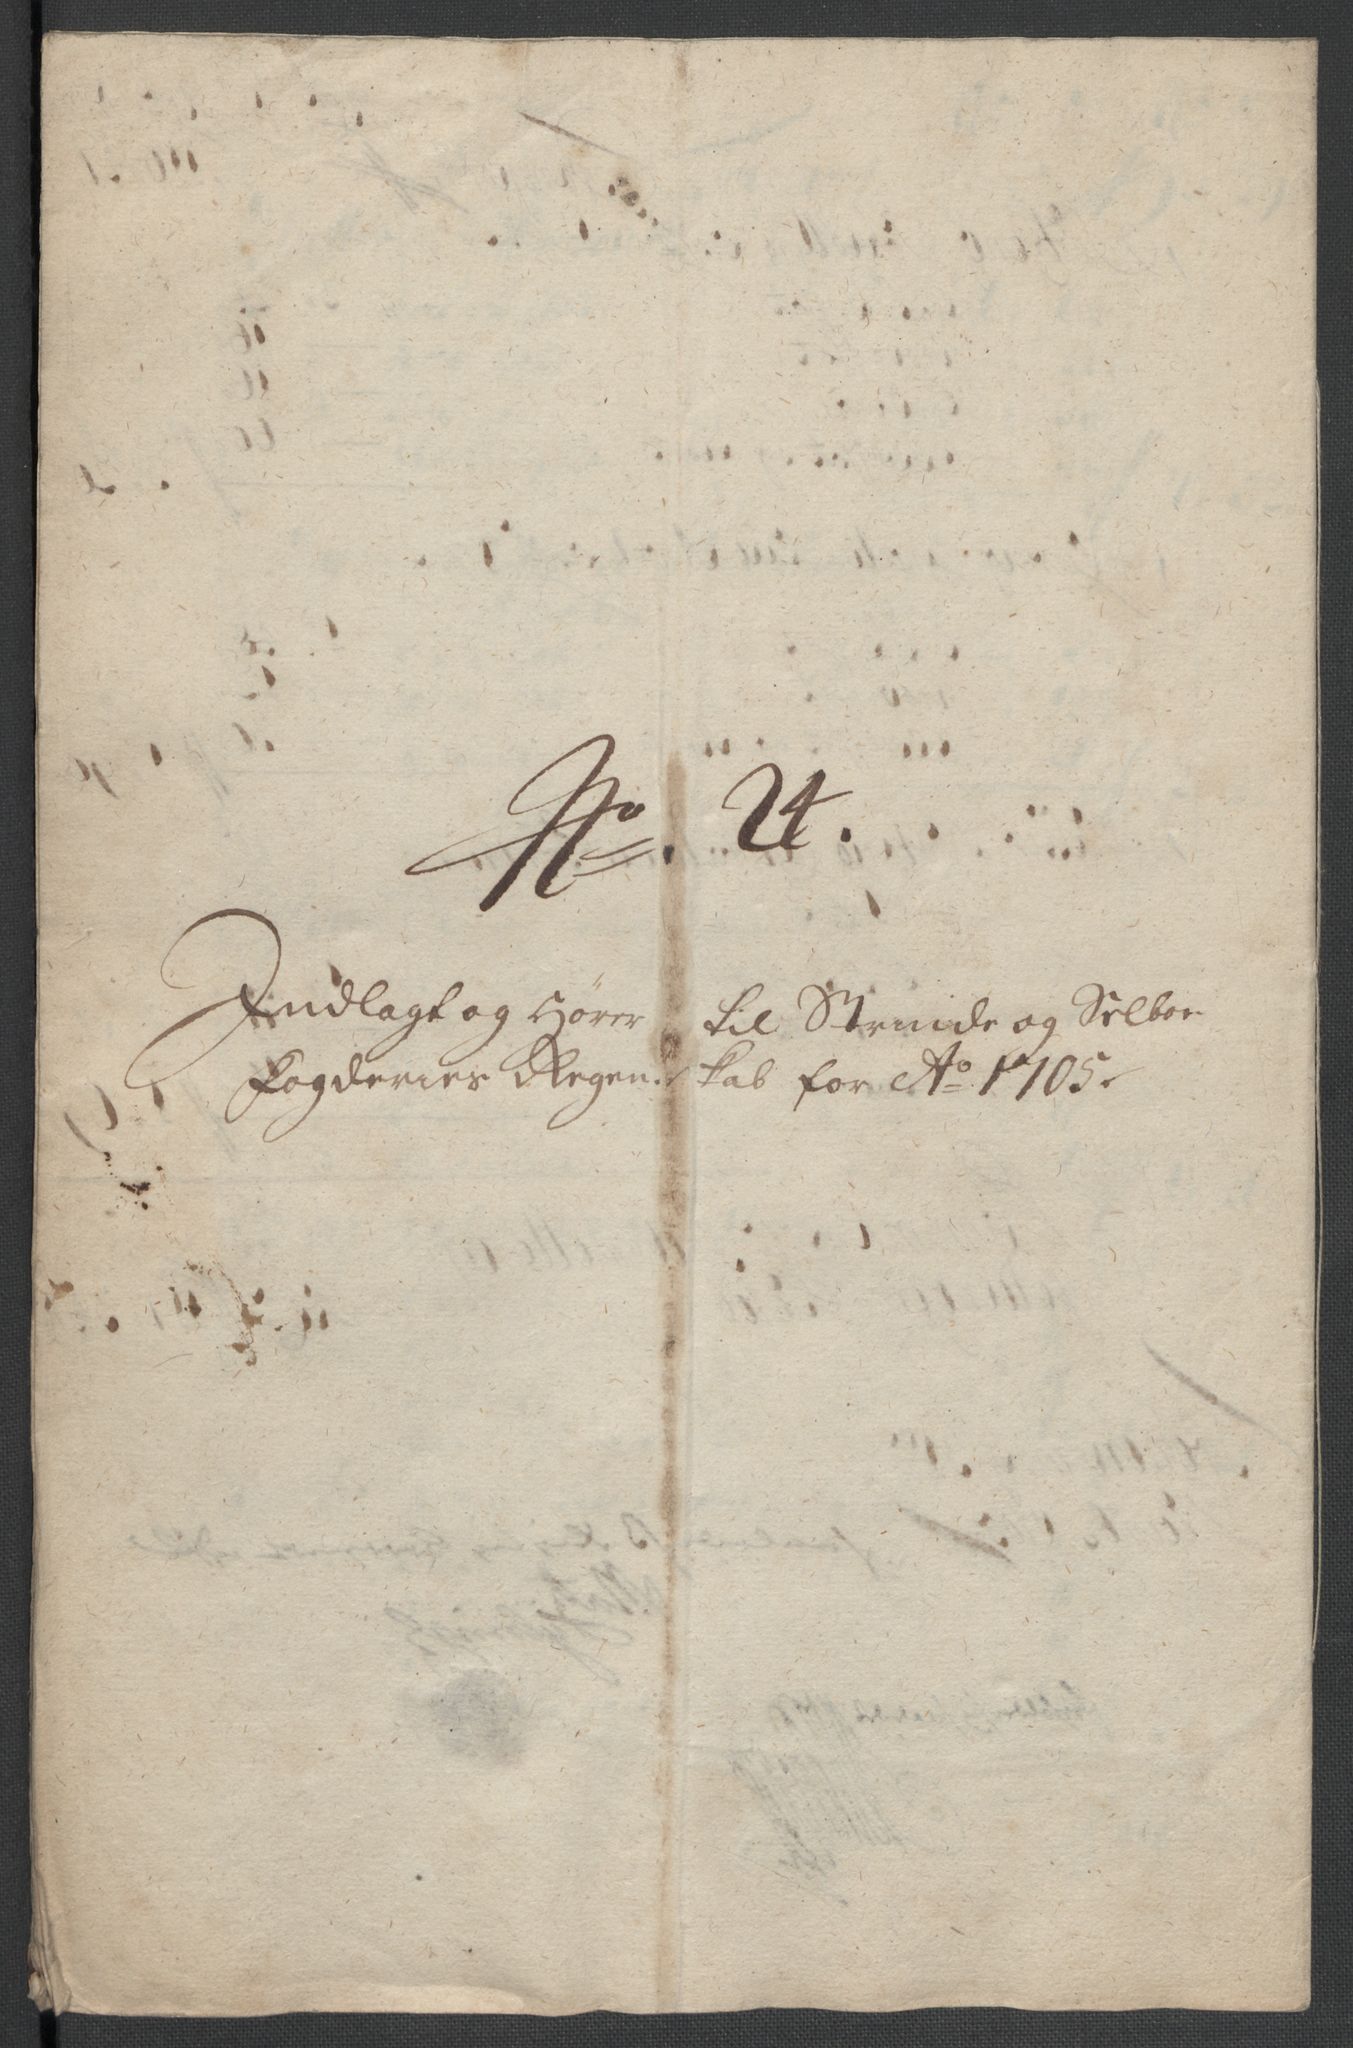 No. 24.
Indlagt og Hører til Strinde og Selboe
Fogderies Regenskab for Ao 1705.